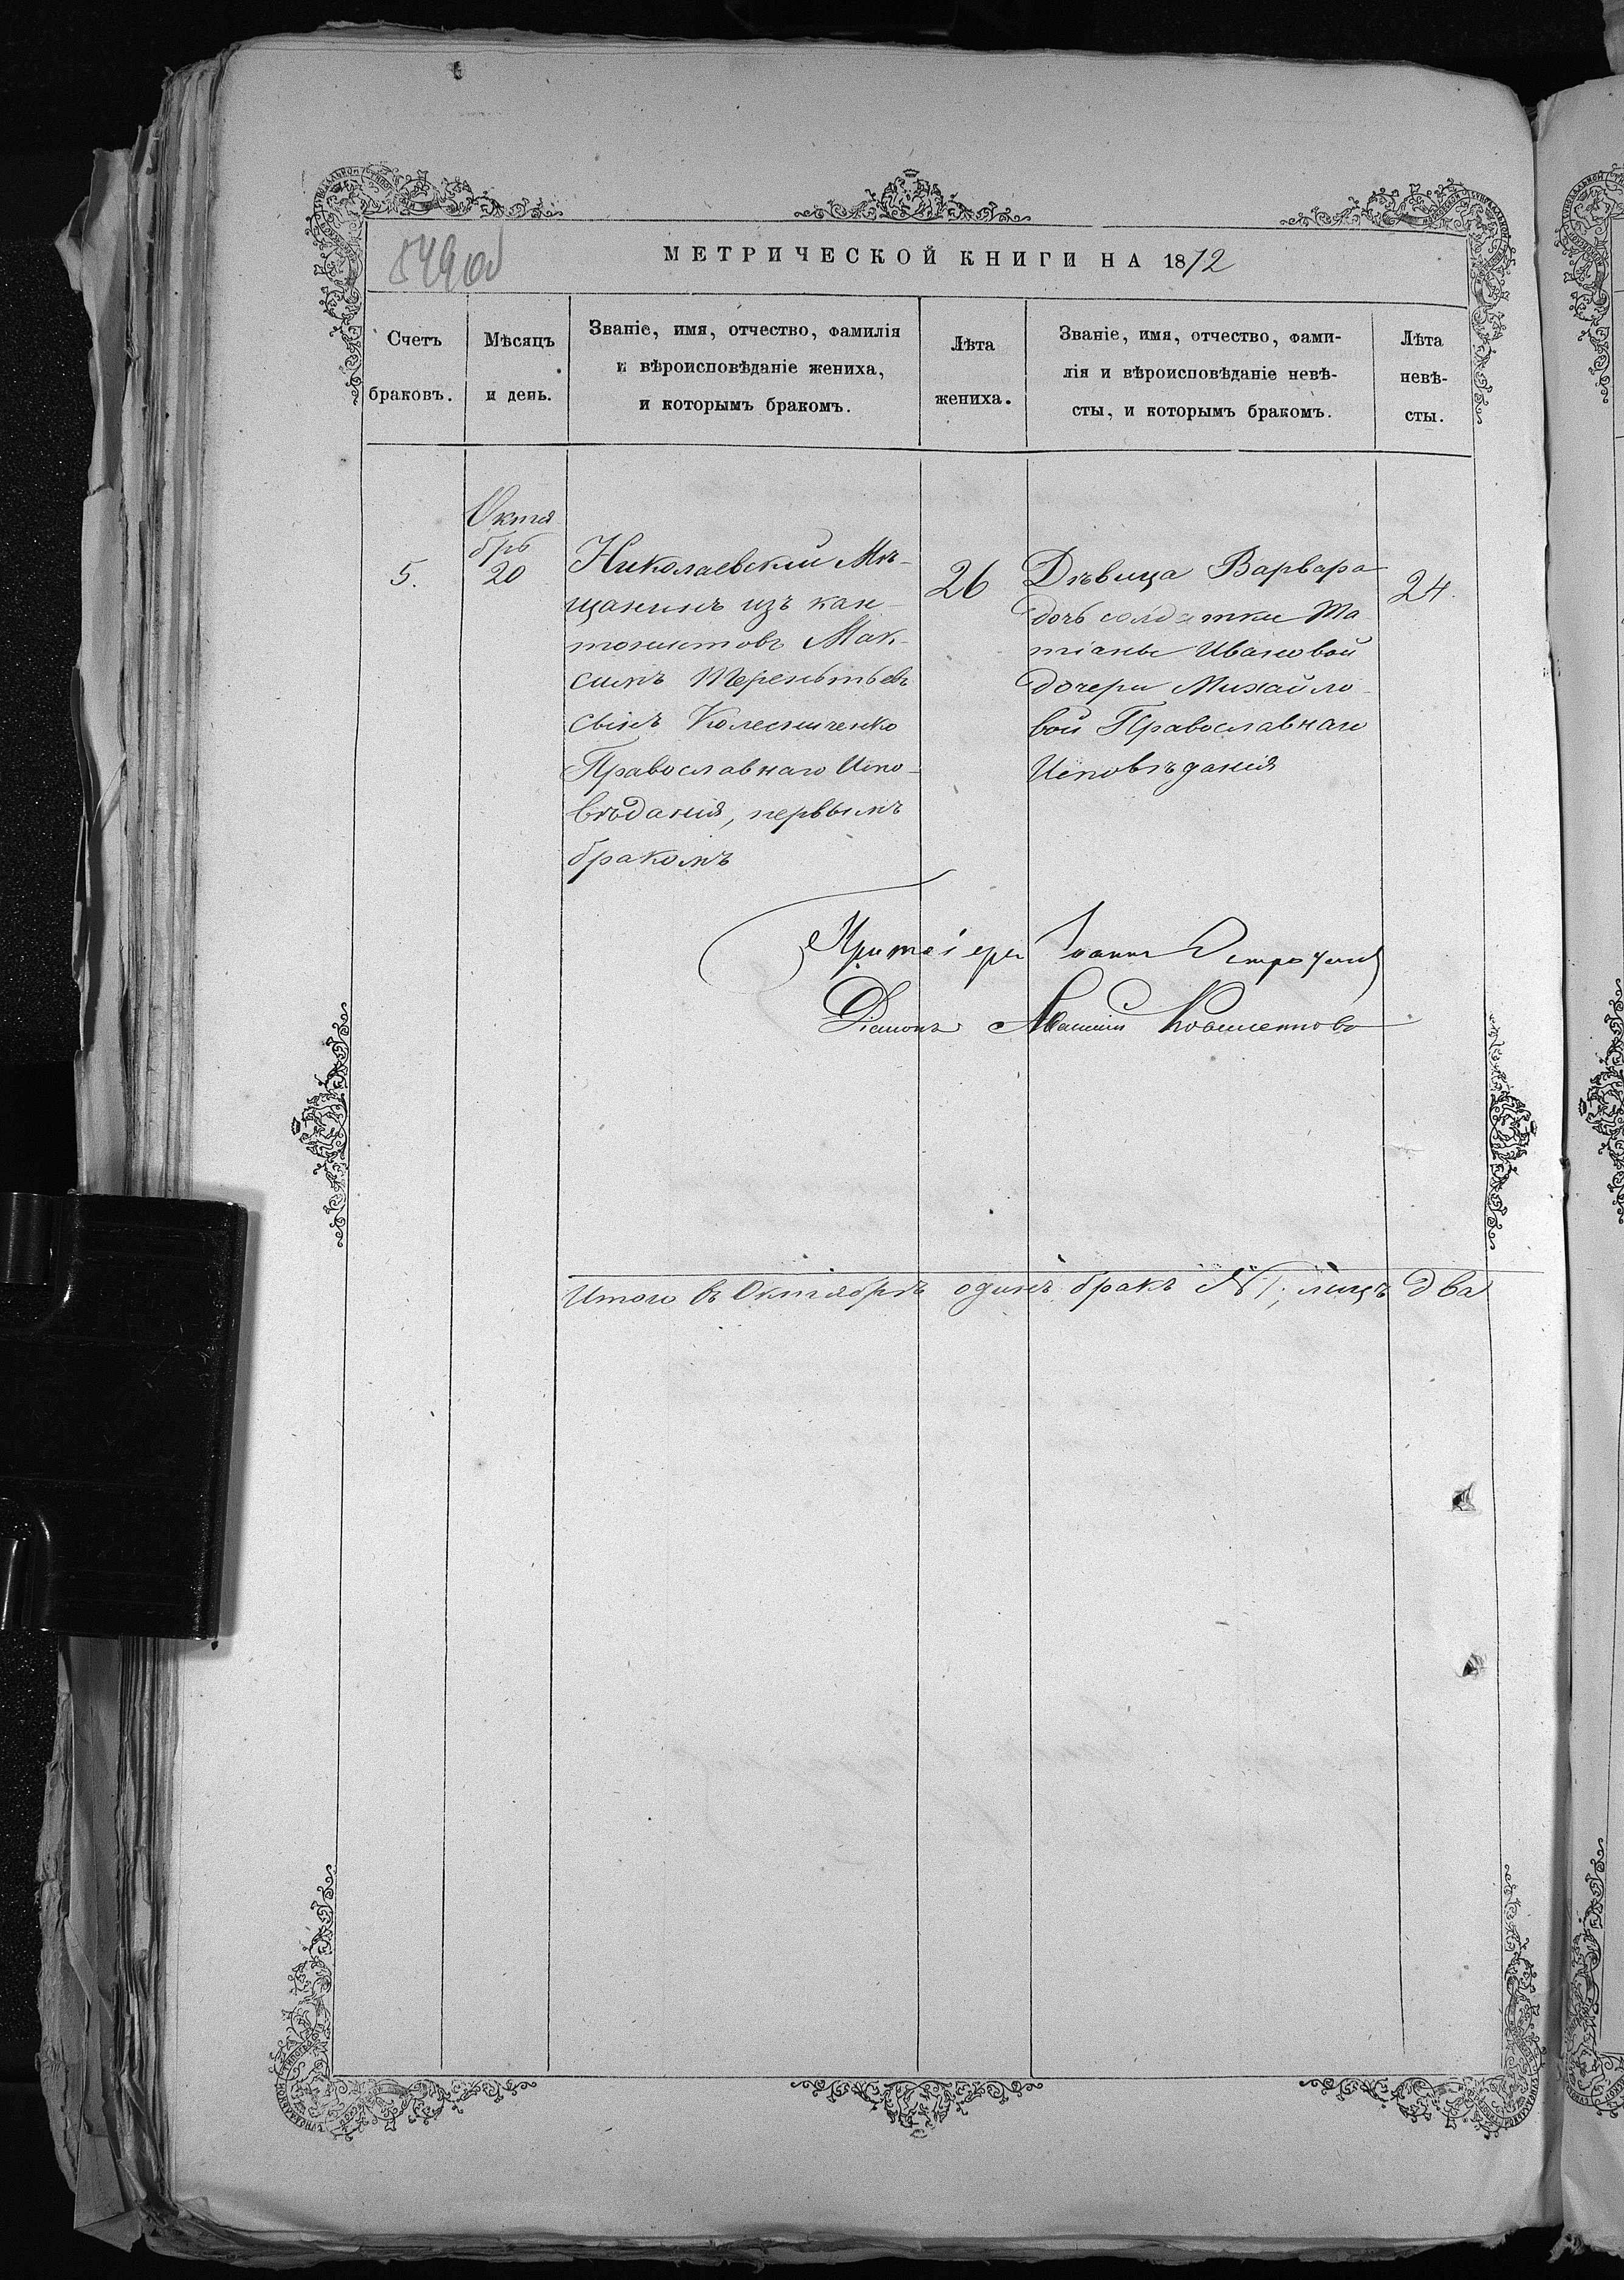 549об
МЕТРИЧЕСКОЙ КНИГИ НА 1872
Счетъ
браковъ.
Мѣсяцъ
и день.
Званіе, имя, отчество, фамилія
и вѣроисповѣданіе жениха,
и которымъ бракомъ.
Лѣта
жениха.
Званіе, имя, отчество, фами-
лія и вѣроисповѣданіе невѣ-
сты, и которымъ бракомъ.
Лѣта
невѣ-
сты.
5.
Октя
брь
20
Николаевскій Мѣ-
щанинъ изъ кан-
тонистовъ Мак-
симъ Терентьевъ
сынъ Колесниченко
Православнаго Испо-
вѣданія, первымъ
бракомъ
26
Дѣвица Варвара
дочь солдатки Та
тіаны Ивановой
дочери Михайло-
вой Православнаго
Исповѣданія
24.
Протоіерей Іоаннъ
Діаконъ
Итого въ Октябрѣ одинъ бракъ №1, лицъ два